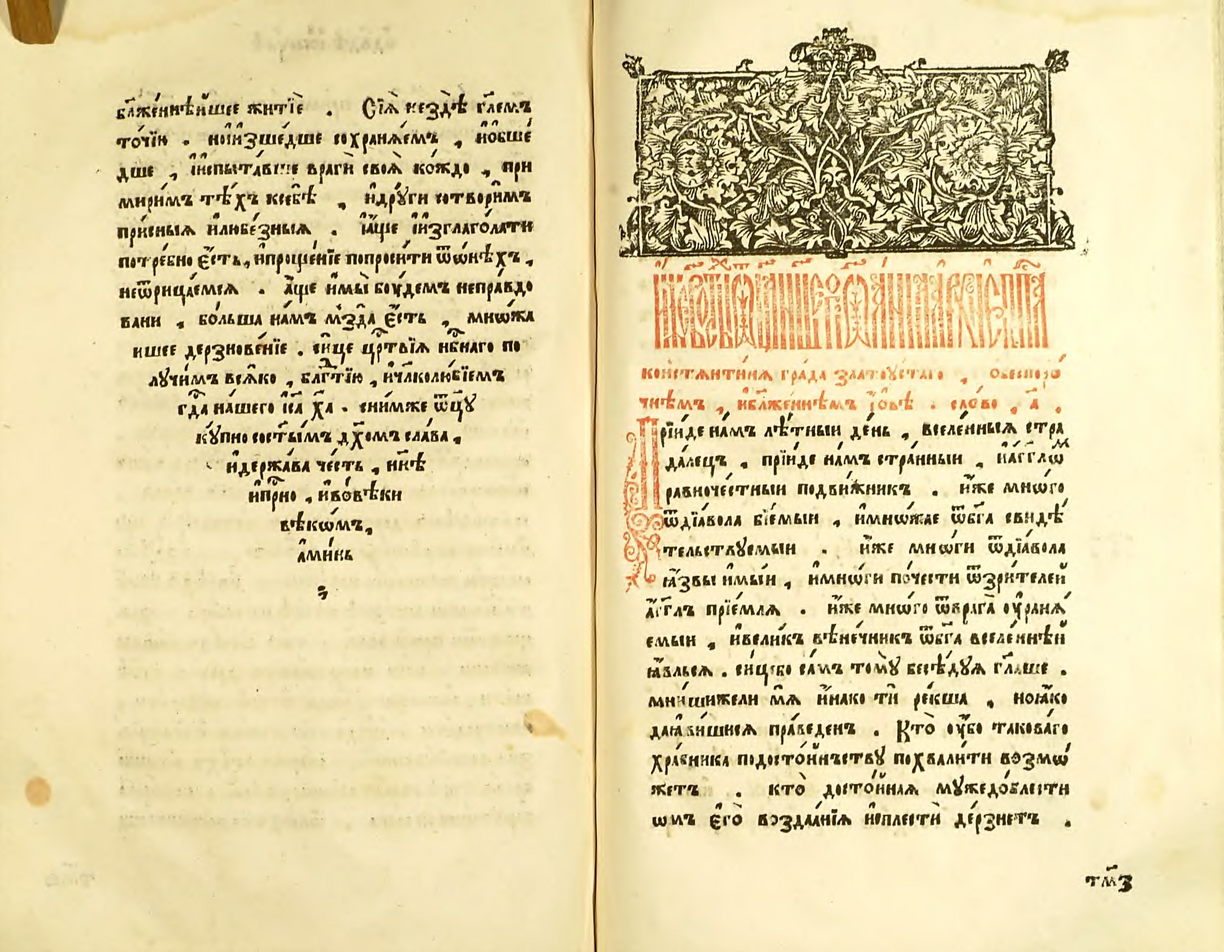 бл҃же́ннѣйшее житїѐ . Сїѧ̀ вездѣ̀ гл҃емъ
то́чїю . но и҆зше́дше сохранѧ́емъ , и҆ ѡ҆бше́
дше , и҆ и҆спыта́вше врагѝ своѧ̀ ко́ждо , при
мири́мъ тѣ́хъ к себѣ̀ , и҆ дру́ги сотвори́мъ
при́сныѧ и҆ любе́зныѧ . а҆́ще и҆ и҆зглаго́лати
потре́бно є҆́сть , и҆ проще́нїе попроси́ти ѿ ѡ҆нѣ́хъ ,
не ѿрица́емсѧ . а҆́ще и҆ мы̀ бꙋ́демъ непра́вдо
вани , бо́льша на́мъ мзда̀ є҆́сть , мно́жа
ишее дерзнове́нїе . си́це црⷭ҇твїѧ нбⷭ҇наго по
лꙋчи́мъ всѧ́ко , блгⷣтїю , и҆ чл҃колю́бїемъ
гдⷭ҇а на́шего і҆с҃а хрⷭ҇та̀ . с ни́мже ѻ҆ц҃ꙋ̀
кꙋ́пно со ст҃ы́мъ дх҃омъ сла́ва ,
и҆ держа́ва че́сть , нн҃ѣ
и҆ прⷭ҇но , и҆ во вѣ́ки
вѣкѡ́мъ ,
а҆ми́нь
константи́нѧ гра́да златоꙋ́стаго ,
чнѣ́мъ , и҆ бл҃же́ннѣмъ і҆́ѡвѣ . сло́во , а҃ .
Прїи́де на́мъ лѣ́тныи де́нь , вселе́нныѧ стра
да́лецъ , прїи́де на́мъ стра́нныи , и҆ а҆́гг҃лѡⷨ
равноче́стныи подви́жникъ . и҆́же мно́го
ѿ дїа́вола бїе́мыи , и҆ мно́жае ѿ бг҃а свидѣ́
тельствꙋемыи . и҆́же мнѡ́ги ѿ дїа́вола
ꙗ҆́звы и҆мы́и , и҆ мнѡ́ги по́чести ѿ зри́телей
а҆́гг҃лъ прїе́млѧ . и҆́же мно́го ѿ врага̀ ᲂу҆ранѧ́
емыи , и҆ вели́къ вѣне́чникъ ѿ бг҃а вселе́ннѣй
ꙗ҆́вльсѧ . си́це бо са́мъ томꙋ̀ бесѣ́дꙋѧ гл҃аше .
мни́ши же ли мѧ̀ и҆на́ко тѝ ре́кша , но ꙗ҆́ко
да ꙗ҆ви́шисѧ пра́веденъ . Кто̀ ᲂу҆̀бо такова́го
хра́бника по досто́инствꙋ похвали́ти возмѡ́
жетъ . кто̀ досто́йнаѧ мꙋжедо́блести
ѡмъ є҆гѡ̀ воздаѧ́нїѧ исплестѝ де́рзнетъ .
тм҃з